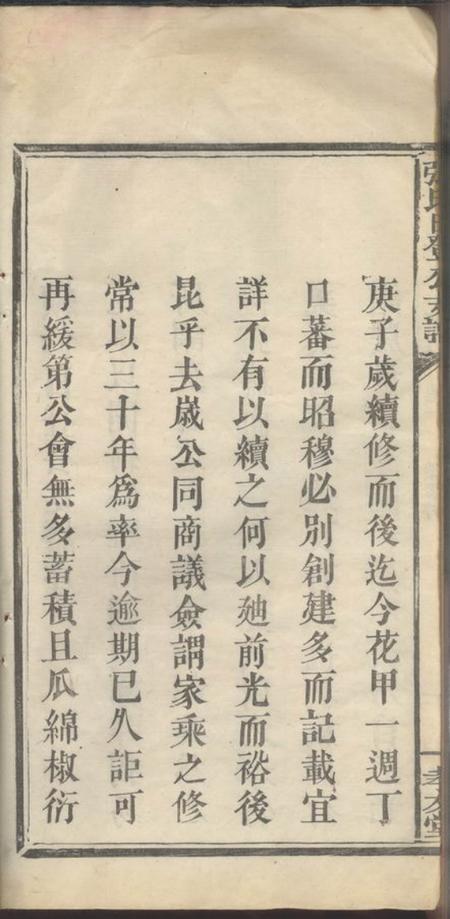 庚子歲續修而後迄今花甲一週丁
口蕃而昭穆必別創建多而記載宜
詳不有以續之何以廸前光而裕後
昆乎去歲公同商議僉謂家乘之修
常以三十年爲率今逾期已久詎可
再緩第公會無多蓄積且瓜綿椒衍